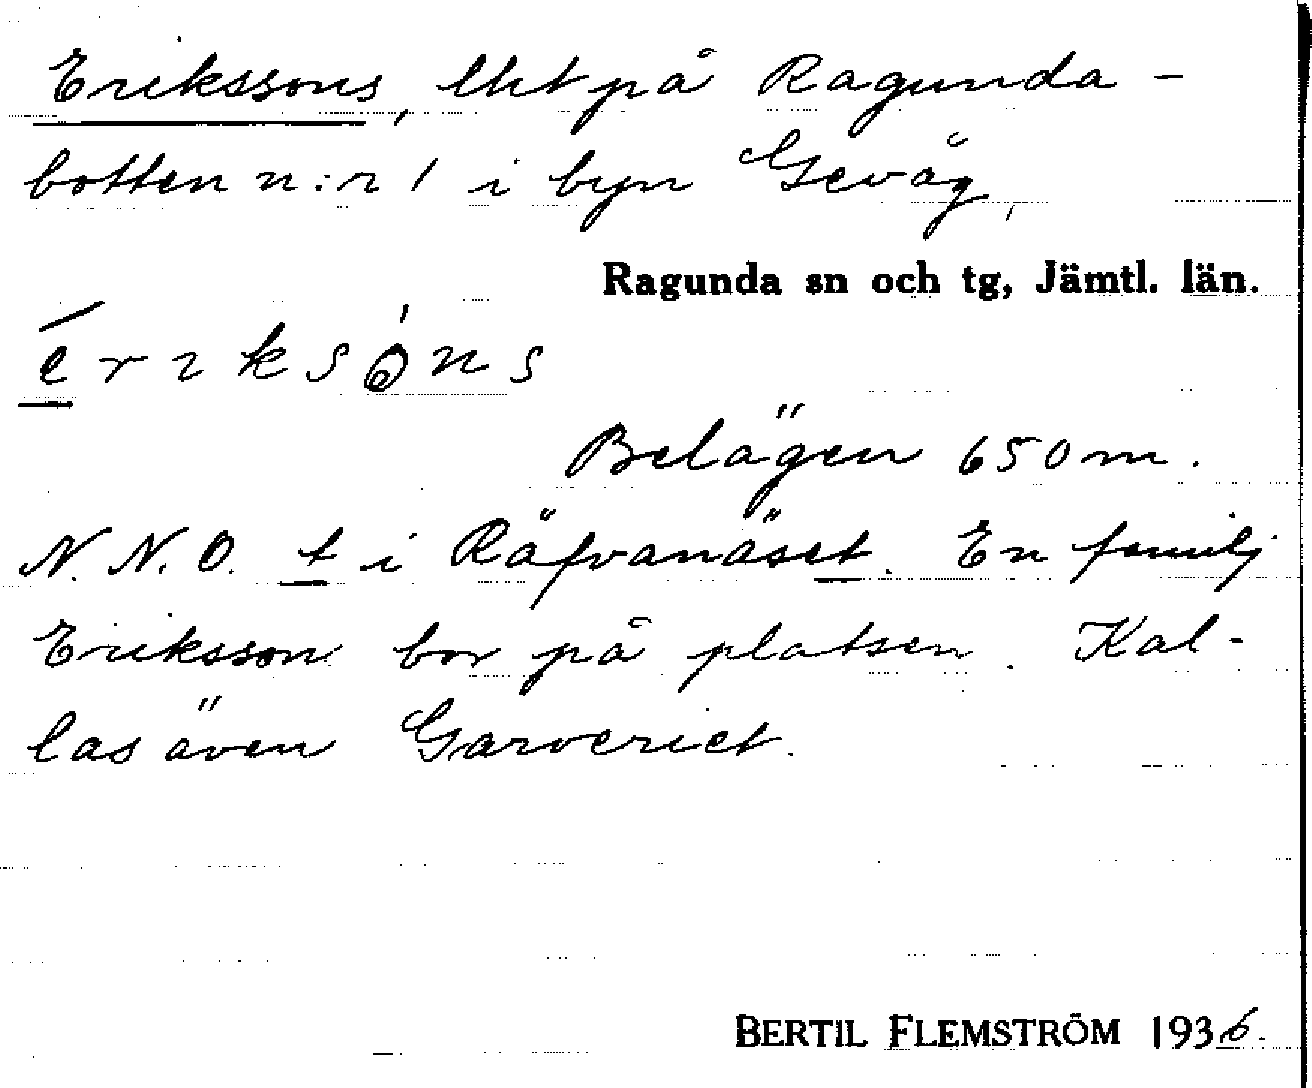 Erikssons, lht på Ragunda-
botten n:r 1 i byn Gevåg,
Ragunda sn och tg, Jämtl. län.
Belägen 650 m.
N.N.O. t i Räfvanäset. En familj
Eriksson bor på platsen. Kal-
las även Garveriet.
BERTIL FLEMSTRÖM 1936.